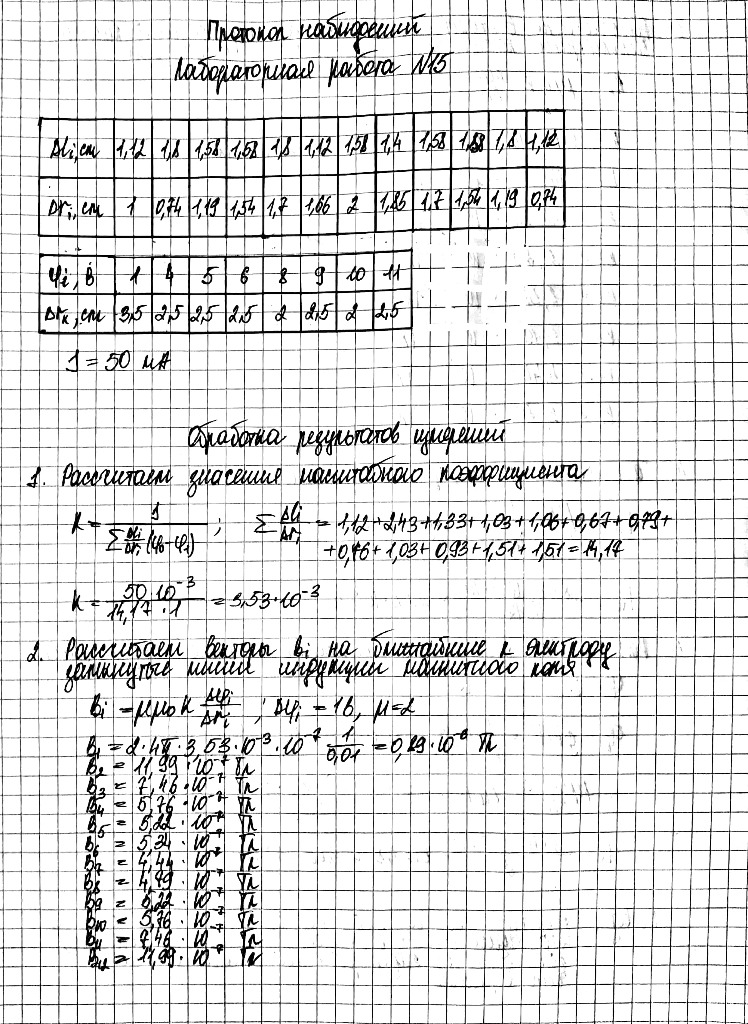 Протокол наблюдений
Лабораторная работа №15
Δli, см 1,12 1,8 1,58 1,58 1,8 1,12 1,58 1,4 1,58 1,8 1,12
Δri, см 1 0,74 1,19 1,54 1,7 1,66 2 1,85 1,7 1,54 1,19 0,74
φi, В 1 4 5 6 8 9 10 11
Δrк, см 3,5 2,5 2,5 2,5 2 2,5 2 2,5
J = 50 мА
Обработка результатов измерений
1. Рассчитаем значение масштабного коэффициента
K = J / (Σ Δli/Δri (φ0-φ1)) ; Σ Δli/Δri = 1,12+2,43+1,33+1,03+1,06+0,67+0,79+
+0,76+1,03+0,93+1,51+1,51=14,17
K = 50·10⁻³ / (14,17 · 1) = 3,53·10⁻³
2. Рассчитаем векторы Bi на ближайшие к электроду
замкнутые линии индукции магнитного поля
Bi = μμ0 K Δφi/Δri ; Δφi = 1В, μ=2
B1 = 2·4π·3,53·10⁻³·10⁻⁷ 1/0,01 = 0,29·10⁻⁶ Тл
B2 = 11,99·10⁻⁷ Тл
B3 = 7,46·10⁻⁷ Тл
B4 = 5,76·10⁻⁷ Тл
B5 = 5,22·10⁻⁷ Тл
B6 = 5,34·10⁻⁷ Тл
B7 = 4,44·10⁻⁷ Тл
B8 = 4,79·10⁻⁷ Тл
B9 = 5,22·10⁻⁷ Тл
B10 = 5,76·10⁻⁷ Тл
B11 = 7,46·10⁻⁷ Тл
B12 = 11,99·10⁻⁷ Тл